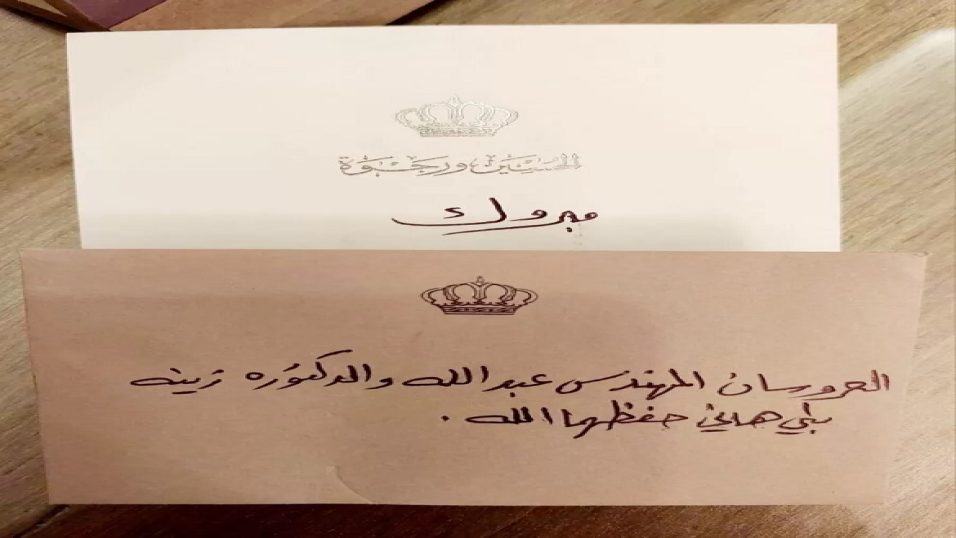 الحسين ورجوة
مبروك
العروسان المهندس عبدالله والدكتوره زينه
بني هاني حفظهما الله .